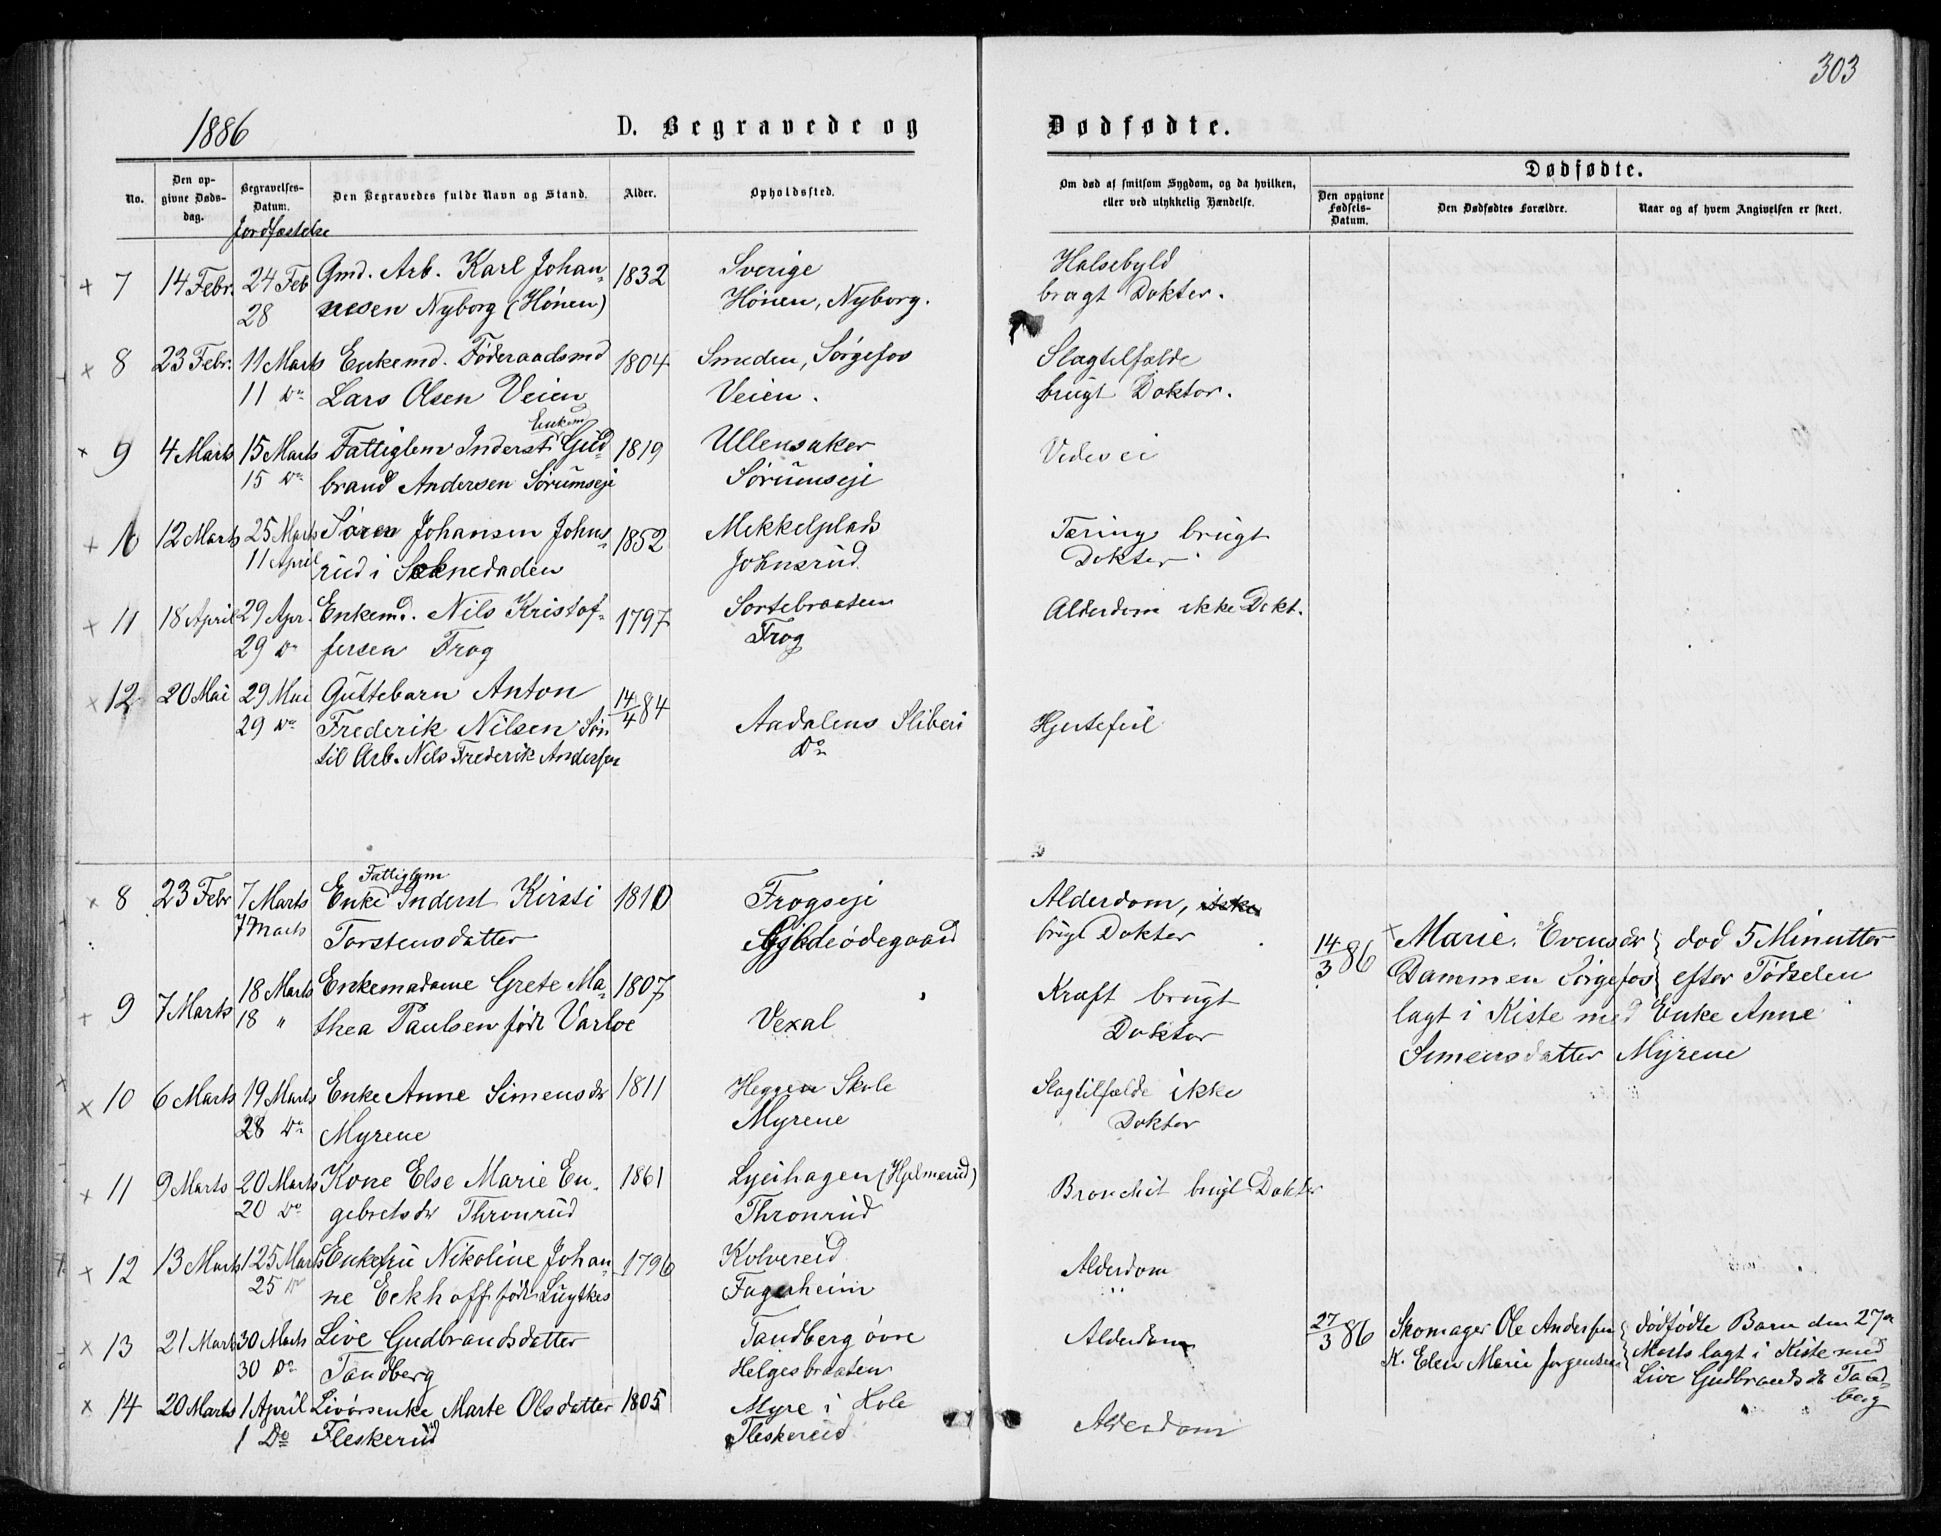 303
1886
D. Begravede og Dødfødte.
No.
Den opgivne Døds-dag.
Begravelses-Datum.
Jordfæstelse
Den Begravedes fulde Navn og Stand.
Alder.
Opholdssted.
Om død af smitsom Sygdom, og da hvilken, eller ved ulykkelig Hændelse.
Dødfødte.
Den opgivne Fødsels-Datum.
Den Dødfødtes Forældre.
Naar og af hvem Angivelsen er skeet.
+ 7 14 Febr. 24 Feb Gmd. Arb. Karl Johan- 1832 Sverige Halsebyld
28 nesen Nyborg (Hönen) Hönen, Nyborg. bragt Dokter.
x 8 23 Febr. 11 Marts Enkemd. Föderaadsmd 1804 Smeden, Sörgefos Slagtilfælde
11 Do Lars Olsen Veien Veien. brugt Doktor.
Enkem
x 9 4 Marts 15 Marts Fattiglem Inderst Gud- 1819 Ullensaker Vedesei
15 Do brand Andersen Sörumseje Sörumseje
+ 10 12 Marts 25 Marts Sören Johansen Johns- 1852 Mekkelplads Tæring brugt
11 April rud i Soknedalen Johnsrud Dokter
x 11 18 April 29 Apr. Enkemd. Nils Kristof- 1797 Sortebraaten Alderdom ikke Dokt.
29 Do fersen Frog Frog
x 12 20 Mai 29 Mai Guttebarn Anton 14/4 84
29 Do Frederik Nilsen Sön Aadalens Sliberi Hjertefeil
til Arb. Nils Frederik Andersen Do
Fattiglem
x 8 23 Febr 7 Marts Enke Inderst Kirsti 1810 Frogseje Alderdom, ikke
7 Marts Torstensdatter brugt Dokter
14/3 86 x Marie Evensdr } död 5 Minutter
Dammen Sörgefos } efter Födselen
lagt i Kiste med Enke Anne
Simensdatter Myrene
+ 9 7 Marts 18 Marts Enkemadame Grete Ma- 1807 Kræft brugt
18 " thea Paulsen födt Varloe Vexal Doktor
x 10 6 Marts 19 Marts Enke Anne Simensdr 1811 Heggen Skole Slagtilfælde ikke
28 Do Myrene Myrene Doktor
x 11 9 Marts 20 Marts Kone Else Marie En- 1861 Lyeihagen (Hjelmerud) Bronchit brugt Dokter
20 Do gebretsdr Thronrud Thronrud
x 12 13 Marts 25 Marts Enkefru Nikoline Johan- 1796 Kolvereid Alderdom
25 Do ne Eckhoff födt Luytkes Fagerheim
x 13 21 Marts 30 Marts Live Gudbrandsdatter Tandberg övre Alderdom
30 Do Tandberg Helgesbraaten
27/3 86 Skomager Ole Andersen } dödfödte Barn den 27de
K. Elen Marie Jorgensen } Marts lagt i Kiste med
Live Gudbrandsdr Tand-
berg
x 14 20 Marts 1 April Livörsenke Marte Olsdatter 1805 Myre i Hole Alderdom
1 Do Fleskerud Fleskereid